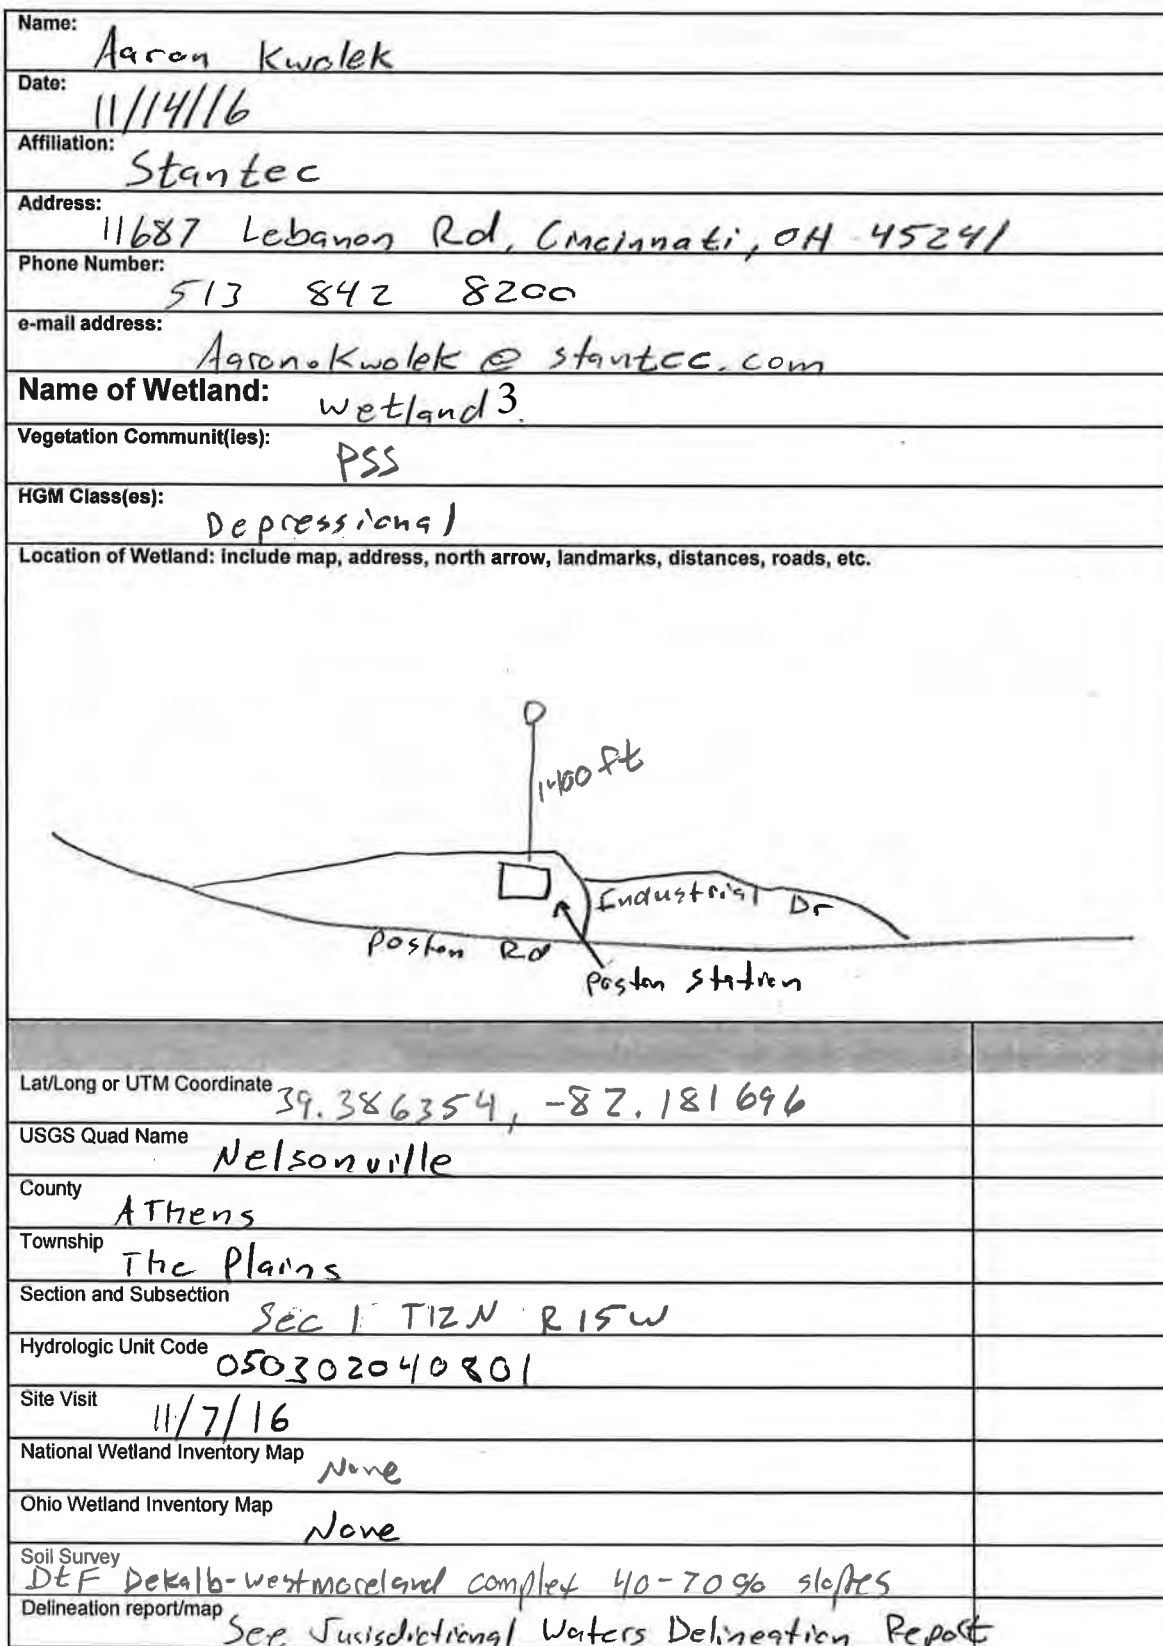 Name:
Aaron Kwolek
Date:
11/14/16
Affiliation:
Stantec
Address:
11687 Lebanon Rd, Cincinnati, OH 45241
Phone Number:
513 842 8200
e-mail address:
Aaron.Kwolek @ stantec.com
Name of Wetland:
Wetland 3
Vegetation Communit(ies):
PSS
HGM Class(es):
Depressional
Location of Wetland: include map, address, north arrow, landmarks, distances, roads, etc.
ft
Industrial Dr
Poston Rd
Poston Station
Lat/Long or UTM Coordinate 39.386354, -82.181696
USGS Quad Name
Nelsonville
County
AThens
Township
The Plains
Section and Subsection
Sec 1 T12N R15W
Hydrologic Unit Code
050302040801
Site Visit
11/7/16
National Wetland Inventory Map
None
Ohio Wetland Inventory Map
None
Soil Survey
DtF Dekalb-westmoreland complex 40-70% slopes
Delineation report/map
See Jurisdictional Waters Delineation Report